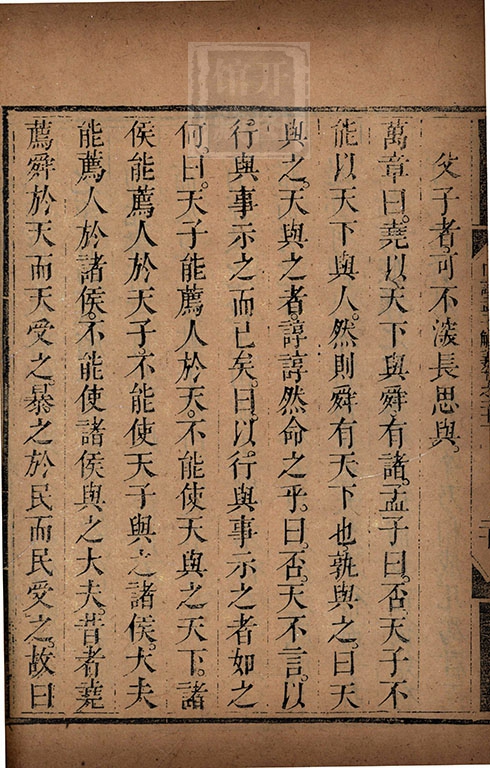 父子者可不深長思與。
萬章曰。堯以天下與舜有諸。孟子曰。否天子不
能以天下與人。然則舜有天下也孰與之。曰天
與之。天與之者。諄諄然命之乎。曰。否。天不言。以
行與事示之而已矣。曰。以。行與事示之者如之
何。曰。天子能薦人於天。不能使天與之天下。諸
侯能薦人於天子。不能使天子與之諸侯。大夫
能薦人於諸侯。不能使諸侯與之大夫。昔者堯
薦舜於天而天受之。暴之於民而民受之。故曰